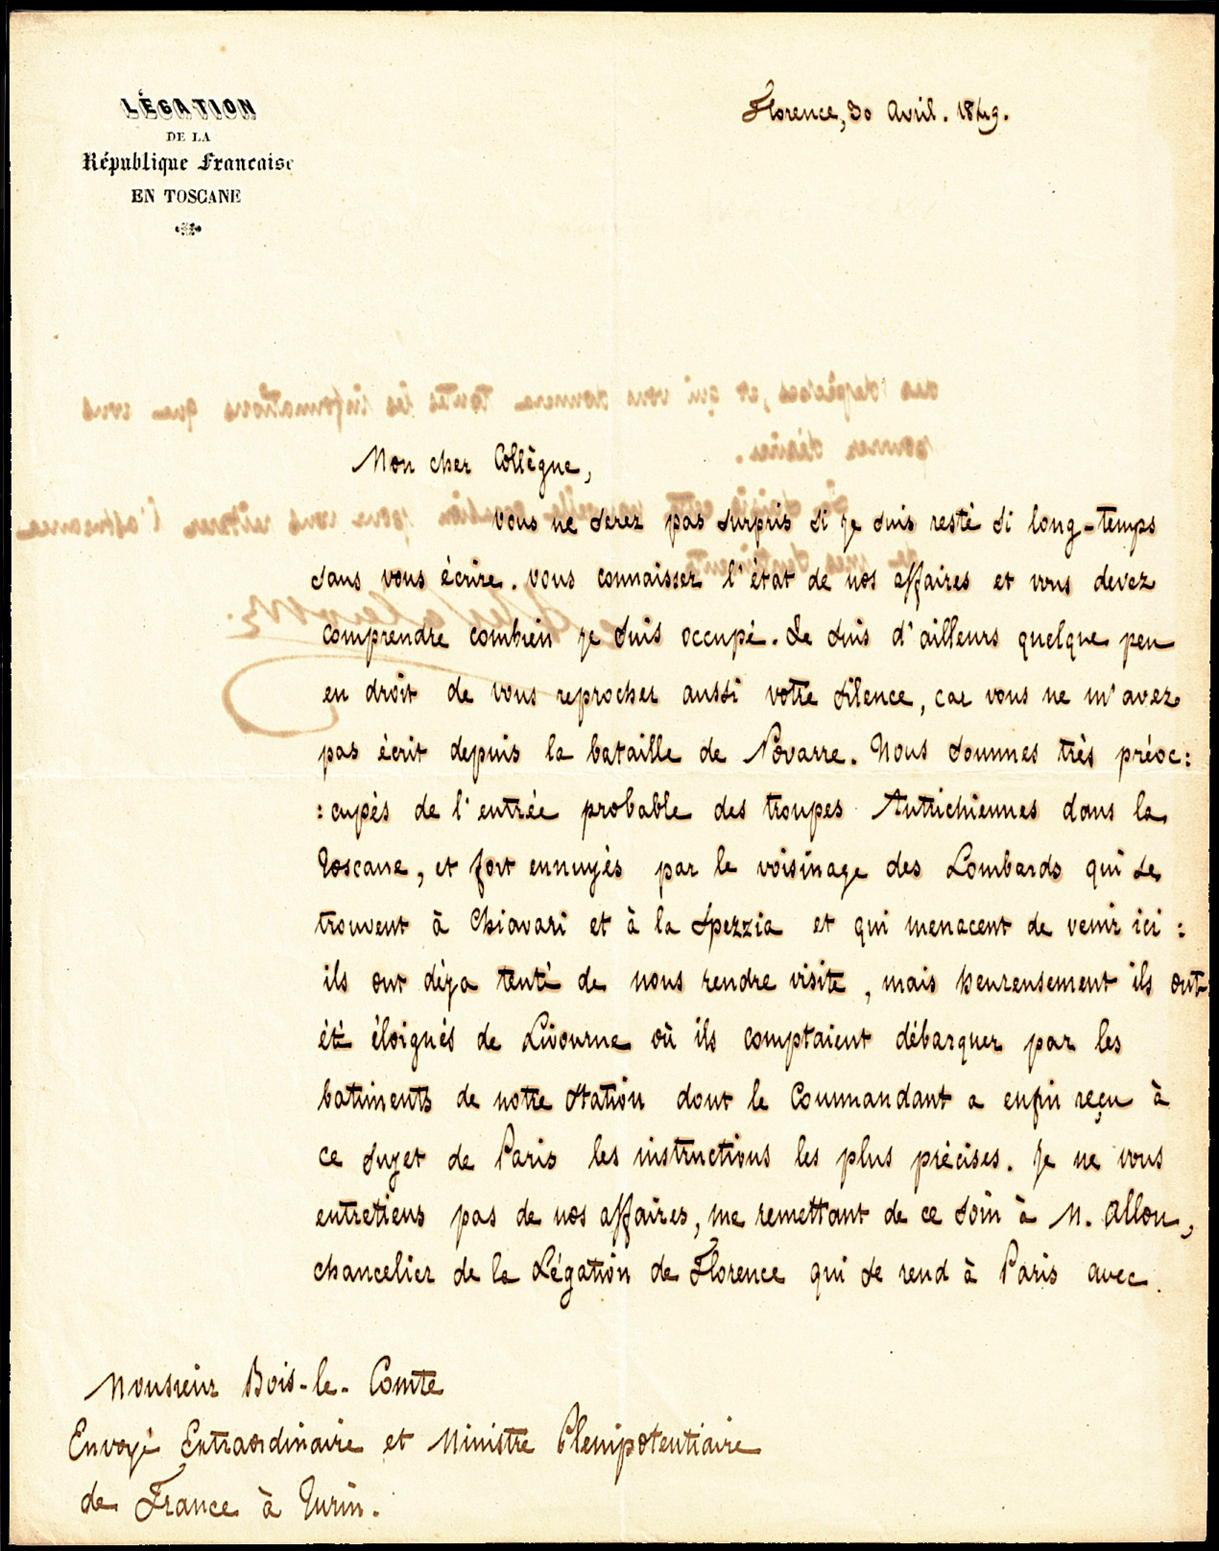 LÉGATION
DE LA
République Francaise
EN TOSCANE
Florence, 30 Avril. 1849.
Mon cher Collègue,
Vous ne serez pas surpris si je suis resté si long-temps
sans vous écrire. Vous connaissez l'état de nos affaires et vous devez
comprendre combien je suis occupé. Je suis d'ailleurs quelque peu
en droit de vous reprocher aussi votre silence, car vous ne m'avez
pas écrit depuis la bataille de Novarre. Nous sommes très préoc:
:cupés de l'entrée probable des troupes Autrichiennes dans la
Toscane, et fort ennuyés par le voisinage des Lombards qui se
trouvent à Chiavari et à la Spezzia et qui menacent de venir ici :
ils ont déja tenté de nous rendre visite, mais heureusement ils ont
été éloignés de Livourne où ils comptaient débarquer par les
batiments de notre station dont le Commandant a enfin reçu à
ce sujet de Paris les instructions les plus précises. Je ne vous
entretiens pas de nos affaires, me remettant de ce soin à M. Allon,
chancelier de la Légation de Florence qui se rend à Paris avec.
des dépêches, et qui vous donnera toutes les informations que vous
pourrez désirer.
Je saisis cette nouvelle occasion pour vous réitérer l'assurance
de mes sentiments
Monsieur Bois-le-Comte
Envoyé Extraordinaire et Ministre Plenipotentiaire
de France à Turin.